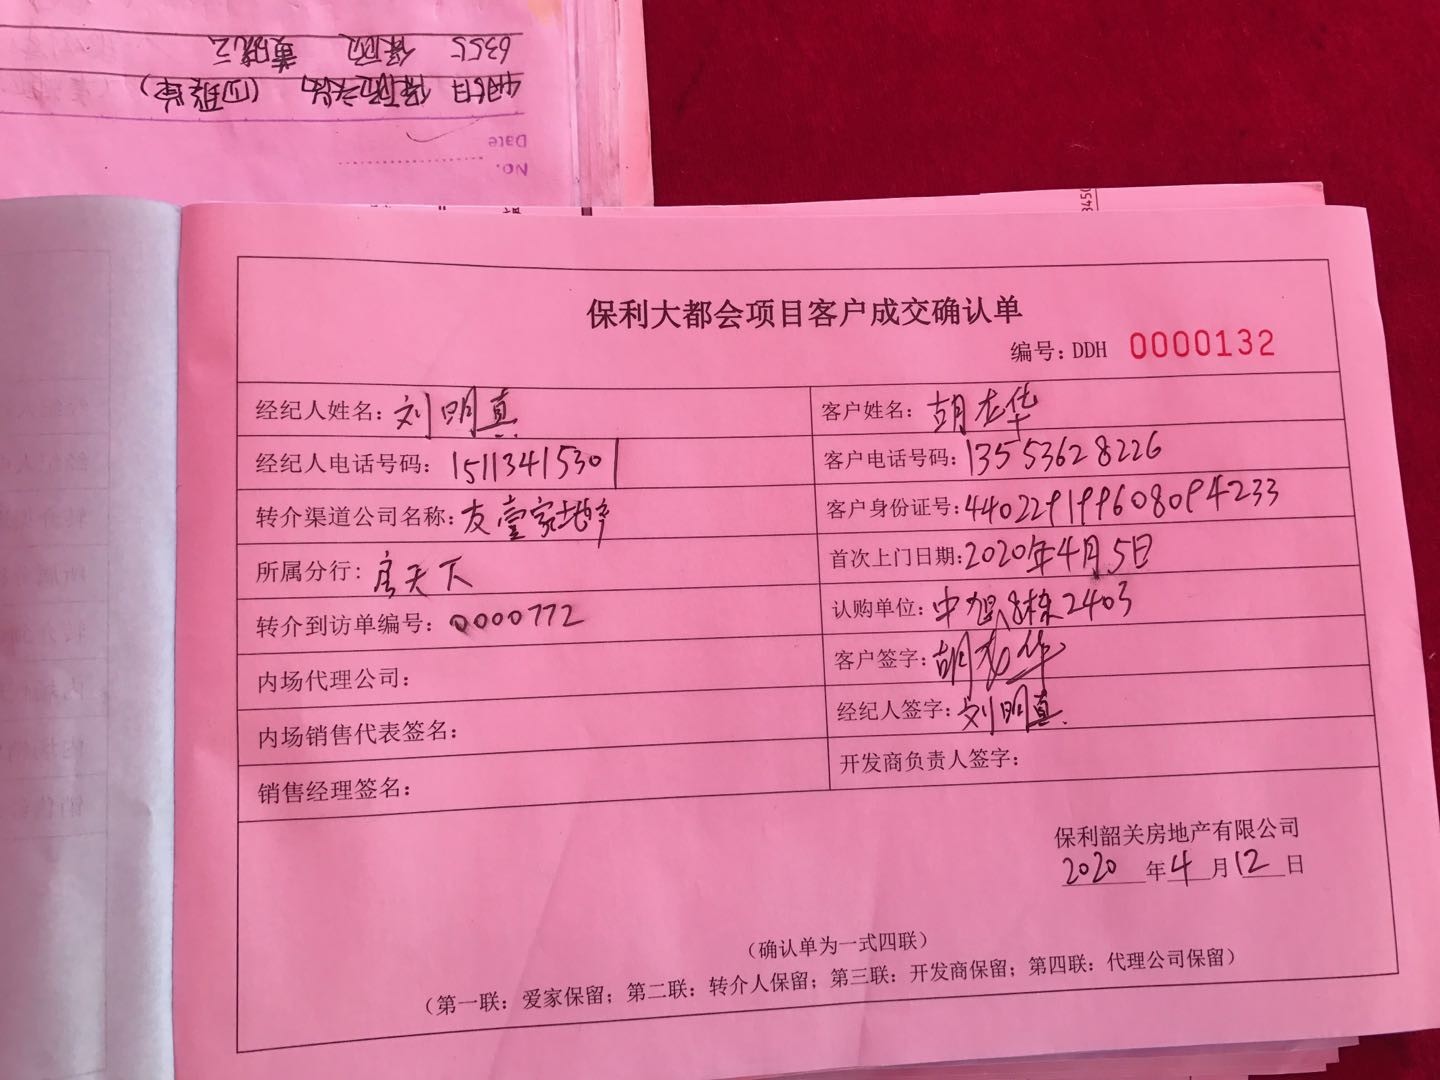 保利大都会项目客户成交确认单
编号: DDH 0000132
经纪人姓名: 刘明真
客户姓名: 胡龙华
经纪人电话号码: 15113415301
客户电话号码: 13553628226
转介渠道公司名称: 友壹家地产
客户身份证号: 440229199608094233
所属分行: 房天下
首次上门日期: 2020年4月5日
转介到访单编号: 0000772
认购单位: 中旭8栋2403
内场代理公司:
客户签字: 胡龙华
内场销售代表签名:
经纪人签字: 刘明真
销售经理签名:
开发商负责人签字:
保利韶关房地产有限公司
2020 年 4 月 12 日
(确认单为一式四联)
(第一联: 爱家保留; 第二联: 转介人保留; 第三联: 开发商保留; 第四联: 代理公司保留)
No.
Date
6355